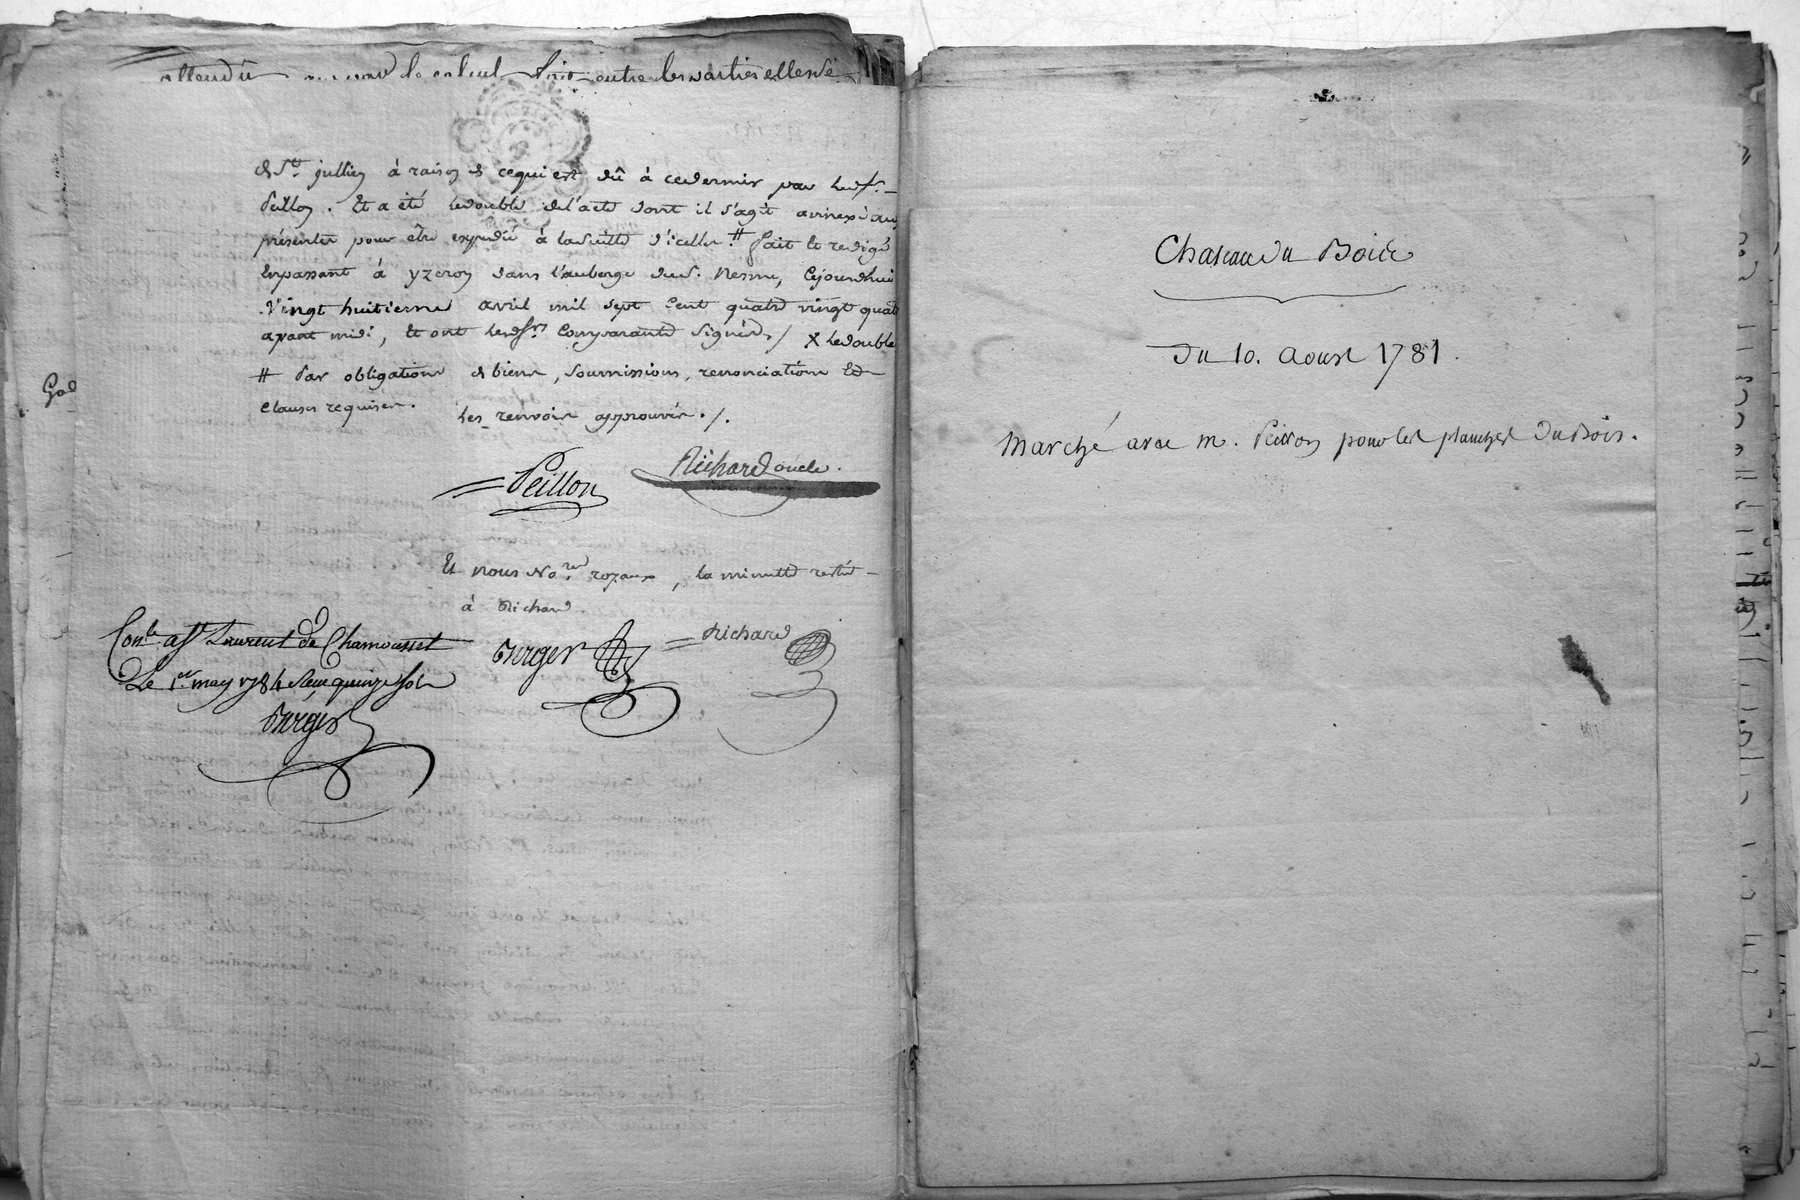 attendû le calcul fait entre les parties elles de
de St. jullien à raison de ce qui est dû à ce dernier par led. sr.
Peillon. Et a été le double de l'acte dont il s'agit annexé aux
présentes pour être expédié à la suitte d'icelles. # fait et redigé
en passant à yzeron dans l'auberge du s. Nesme, cejourdhui
vingt huitieme avril mil sept cent quatre vingt quatre
avant midi, et ont lesd. srs. comparants signés / X le double
# Par obligations de biens, soumissions, renonciations Et
clauses requises. les renvois approuvés. /.
Gad
Peillon Richard oncle.
Et nous No.res royaux, la minutte restée
à Richard
Conlé a St Laurent de Chamousset
Le 1er may 1784 Reçu quinze sols
Berger
Berger Richard
Chateau du Bois
Du 10. Aoust 1781.
Marché avec m. Peillon pour les planches du Bois.